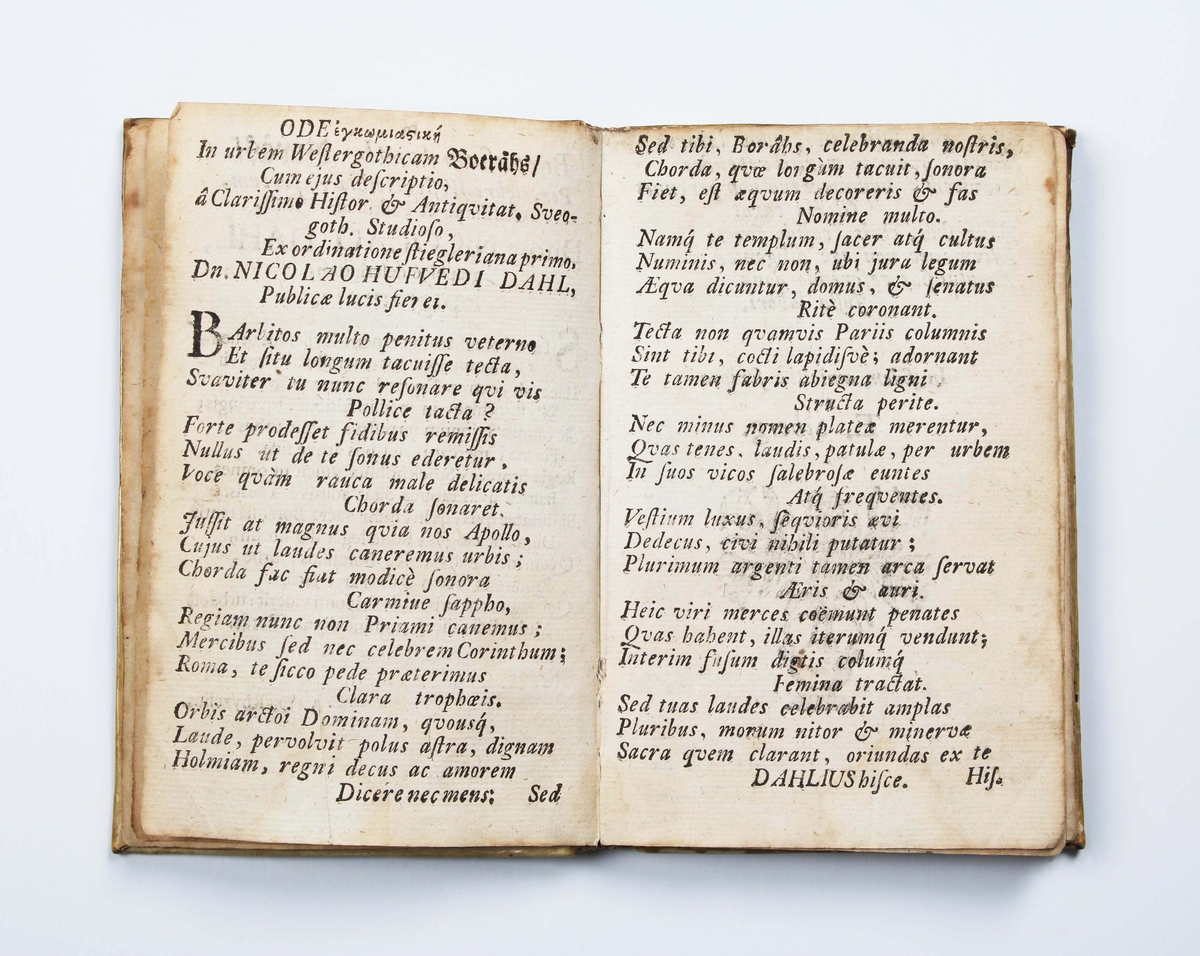 ODE ἐγκωμιαϛική
In urbem Westergothicam Boeråhs/
Cum ejus descriptio,
â Clarissimo Histor. & Antiqvitat. Sveo-
goth. Studioso,
Ex ordinatione stiegleriana primo,
Dn. NICOLAO HUFVEDI DAHL,
Publicæ lucis fieret.
BArbitos multo penitus veterno
Et situ longum tacuisse tecta,
Svaviter tu nunc resonare qvi vis
Pollice tacta?
Forte prodesset fidibus remissis
Nullus ut de te sonus ederetur,
Voce qvàm rauca male delicatis
Chorda sonaret.
Jussit at magnus qvia nos Apollo,
Cujus ut laudes caneremus urbis;
Chorda fac fiat modicè sonora
Carmine sappho,
Regiam nunc non Priami canemus;
Mercibus sed nec celebrem Corinthum;
Roma, te sicco pede præterimus
Clara trophœis.
Orbis arctoi Dominam, qvousq́,
Laude, pervolvit polus astra, dignam
Holmiam, regni decus ac amorem
Dicere nec mens: Sed
Sed tibi, Boråhs, celebranda nostris,
Chorda, qvæ longùm tacuit, sonora
Fiet, est æqvum decoreris & fas
Nomine multo.
Namq́ te templum, sacer atq́ cultus
Numinis, nec non, ubi jura legum
Æqva dicuntur, domus, & senatus
Ritè coronant.
Tecta non qvamvis Pariis columnis
Sint tibi, cocti lapidisvè; adornant
Te tamen fabris abiegna ligni
Structa perite.
Nec minus nomen plateæ merentur,
Qvas tenes, laudis, patulæ, per urbem
In suos vicos salebrosæ euntes
Atq́ freqventes.
Vestium luxus, seqvioris ævi
Dedecus, civi nihili putatur;
Plurimum argenti tamen arca servat
Æris & auri.
Heic viri merces coëmunt penates
Qvas habent, illas iterumq́ vendunt;
Interim fusum digtis columq́
Femina tractat.
Sed tuas laudes celebrabit amplas
Pluribus, morum nitor & minervæ
Sacra qvem clarant, oriundas ex te
DAHLIUS hisce. His.